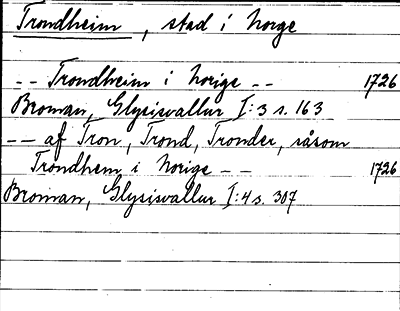 Trondheim, stad i Norge
-- Trondheim i Norige -- 1726
Broman, Glysisvallur I:3 s. 163
-- af Tron, Trond, Tronder, såsom
Trondhem i Norige -- 1726
Broman, Glysisvallur I:4 s. 307